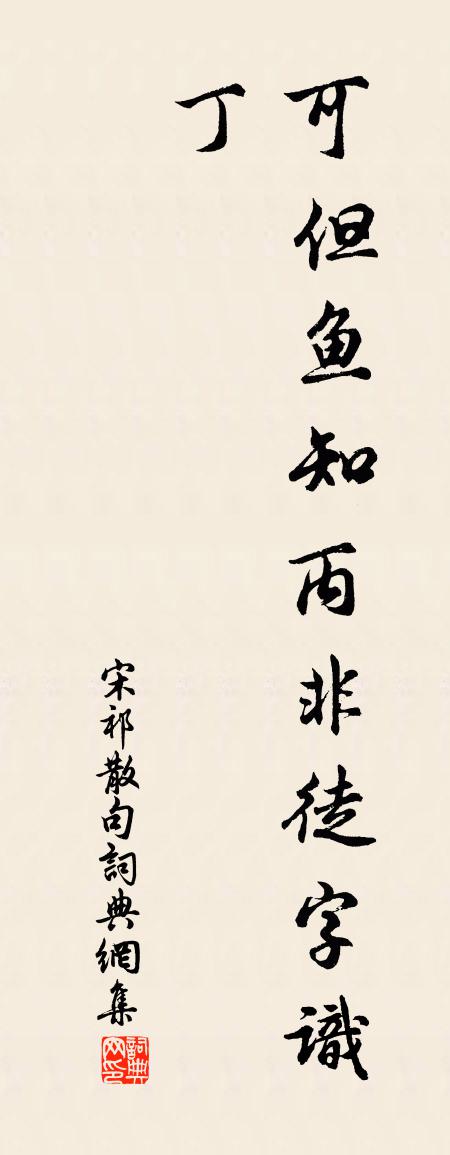 可但鱼知丙非徒字識
丁
宋祁散句詞典網集
詞典网印